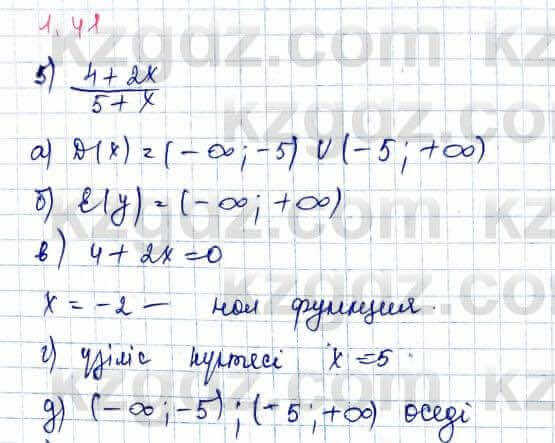 1.41
5) 4 + 2x / 5 + x
а) D(x) = (-∞; -5) ∪ (-5; +∞)
б) E(y) = (-∞; +∞)
в) 4 + 2x = 0
x = -2 — нол функция.
г) үзіліс нүктесі x = 5.
д) (-∞; -5); (-5; +∞) өседі
kzgdz.com